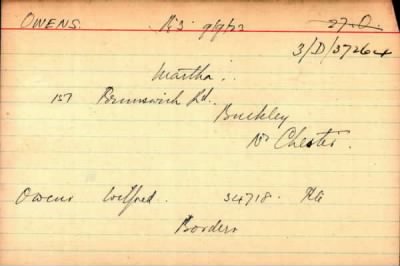 OWENS. 9/9/23 27.O.
3/D/37264
Martha.
157 Brunswick Rd.
Buckley
Nr Chester.
Owens Wilfred. 34718.
Borders